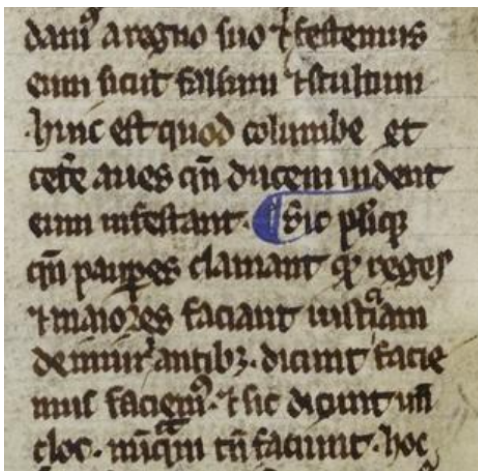 dam᷒ a regno suo ⁊ festemus
eum sicut falsum ⁊ stultum
hinc est quod columbe et
cet̄e aues qn̄ ducem uident
eum infestant. ¶ Sic pl̄iq̄
qn̄ pauꝑes clamant qꝫ reges
⁊ maiores faciant iustic̄iam
de iniur̄antibꝫ. dicunt facie
mus faciem᷒. ⁊ sic dicunt
cloc. tn̄ faciunt. hoc